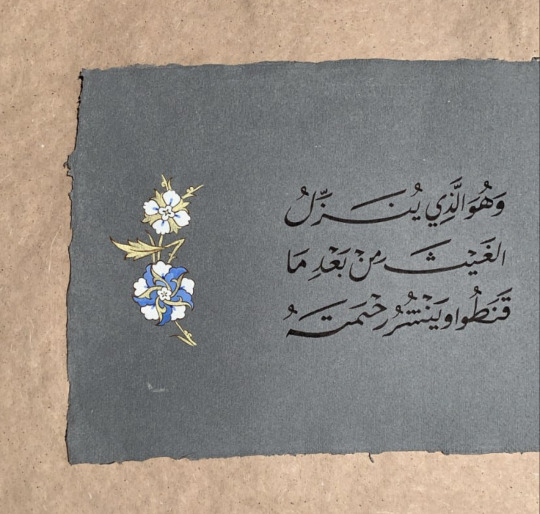 وَهُوَ الَّذِي يُنَزِّلُ
الغَيْثَ مِنْ بَعْدِ مَا
قَنَطُوا وَيَنْشُرُ رَحْمَتَهُ